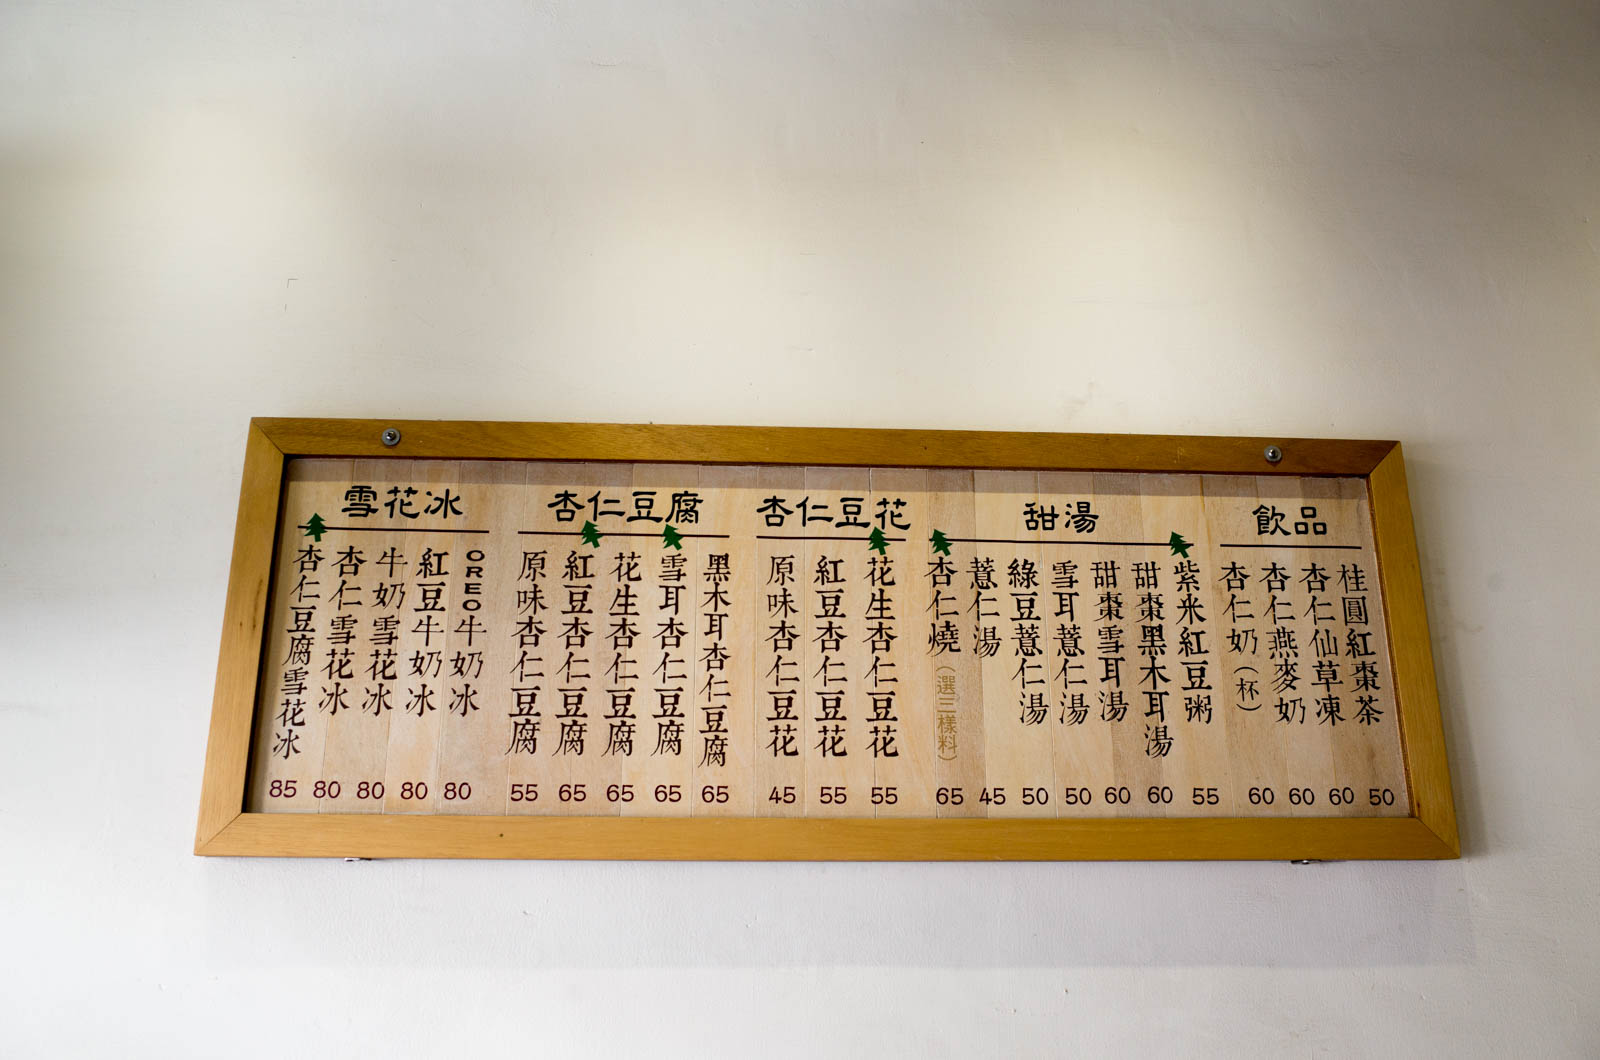 雪花冰
杏仁豆腐雪花冰 85
杏仁雪花冰 80
牛奶雪花冰 80
紅豆牛奶冰 80
OREO牛奶冰 80
杏仁豆腐
原味杏仁豆腐 55
紅豆杏仁豆腐 65
花生杏仁豆腐 65
雪耳杏仁豆腐 65
黑木耳杏仁豆腐 65
杏仁豆花
原味杏仁豆花 45
紅豆杏仁豆花 55
花生杏仁豆花 55
甜湯
杏仁燒(選三樣料) 65
薏仁湯 45
綠豆薏仁湯 50
雪耳薏仁湯 50
甜棗雪耳湯 60
甜棗黑木耳湯 60
紫米紅豆粥 55
飲品
杏仁奶(杯) 60
杏仁燕麥奶 60
杏仁仙草凍 60
桂圓紅棗茶 50